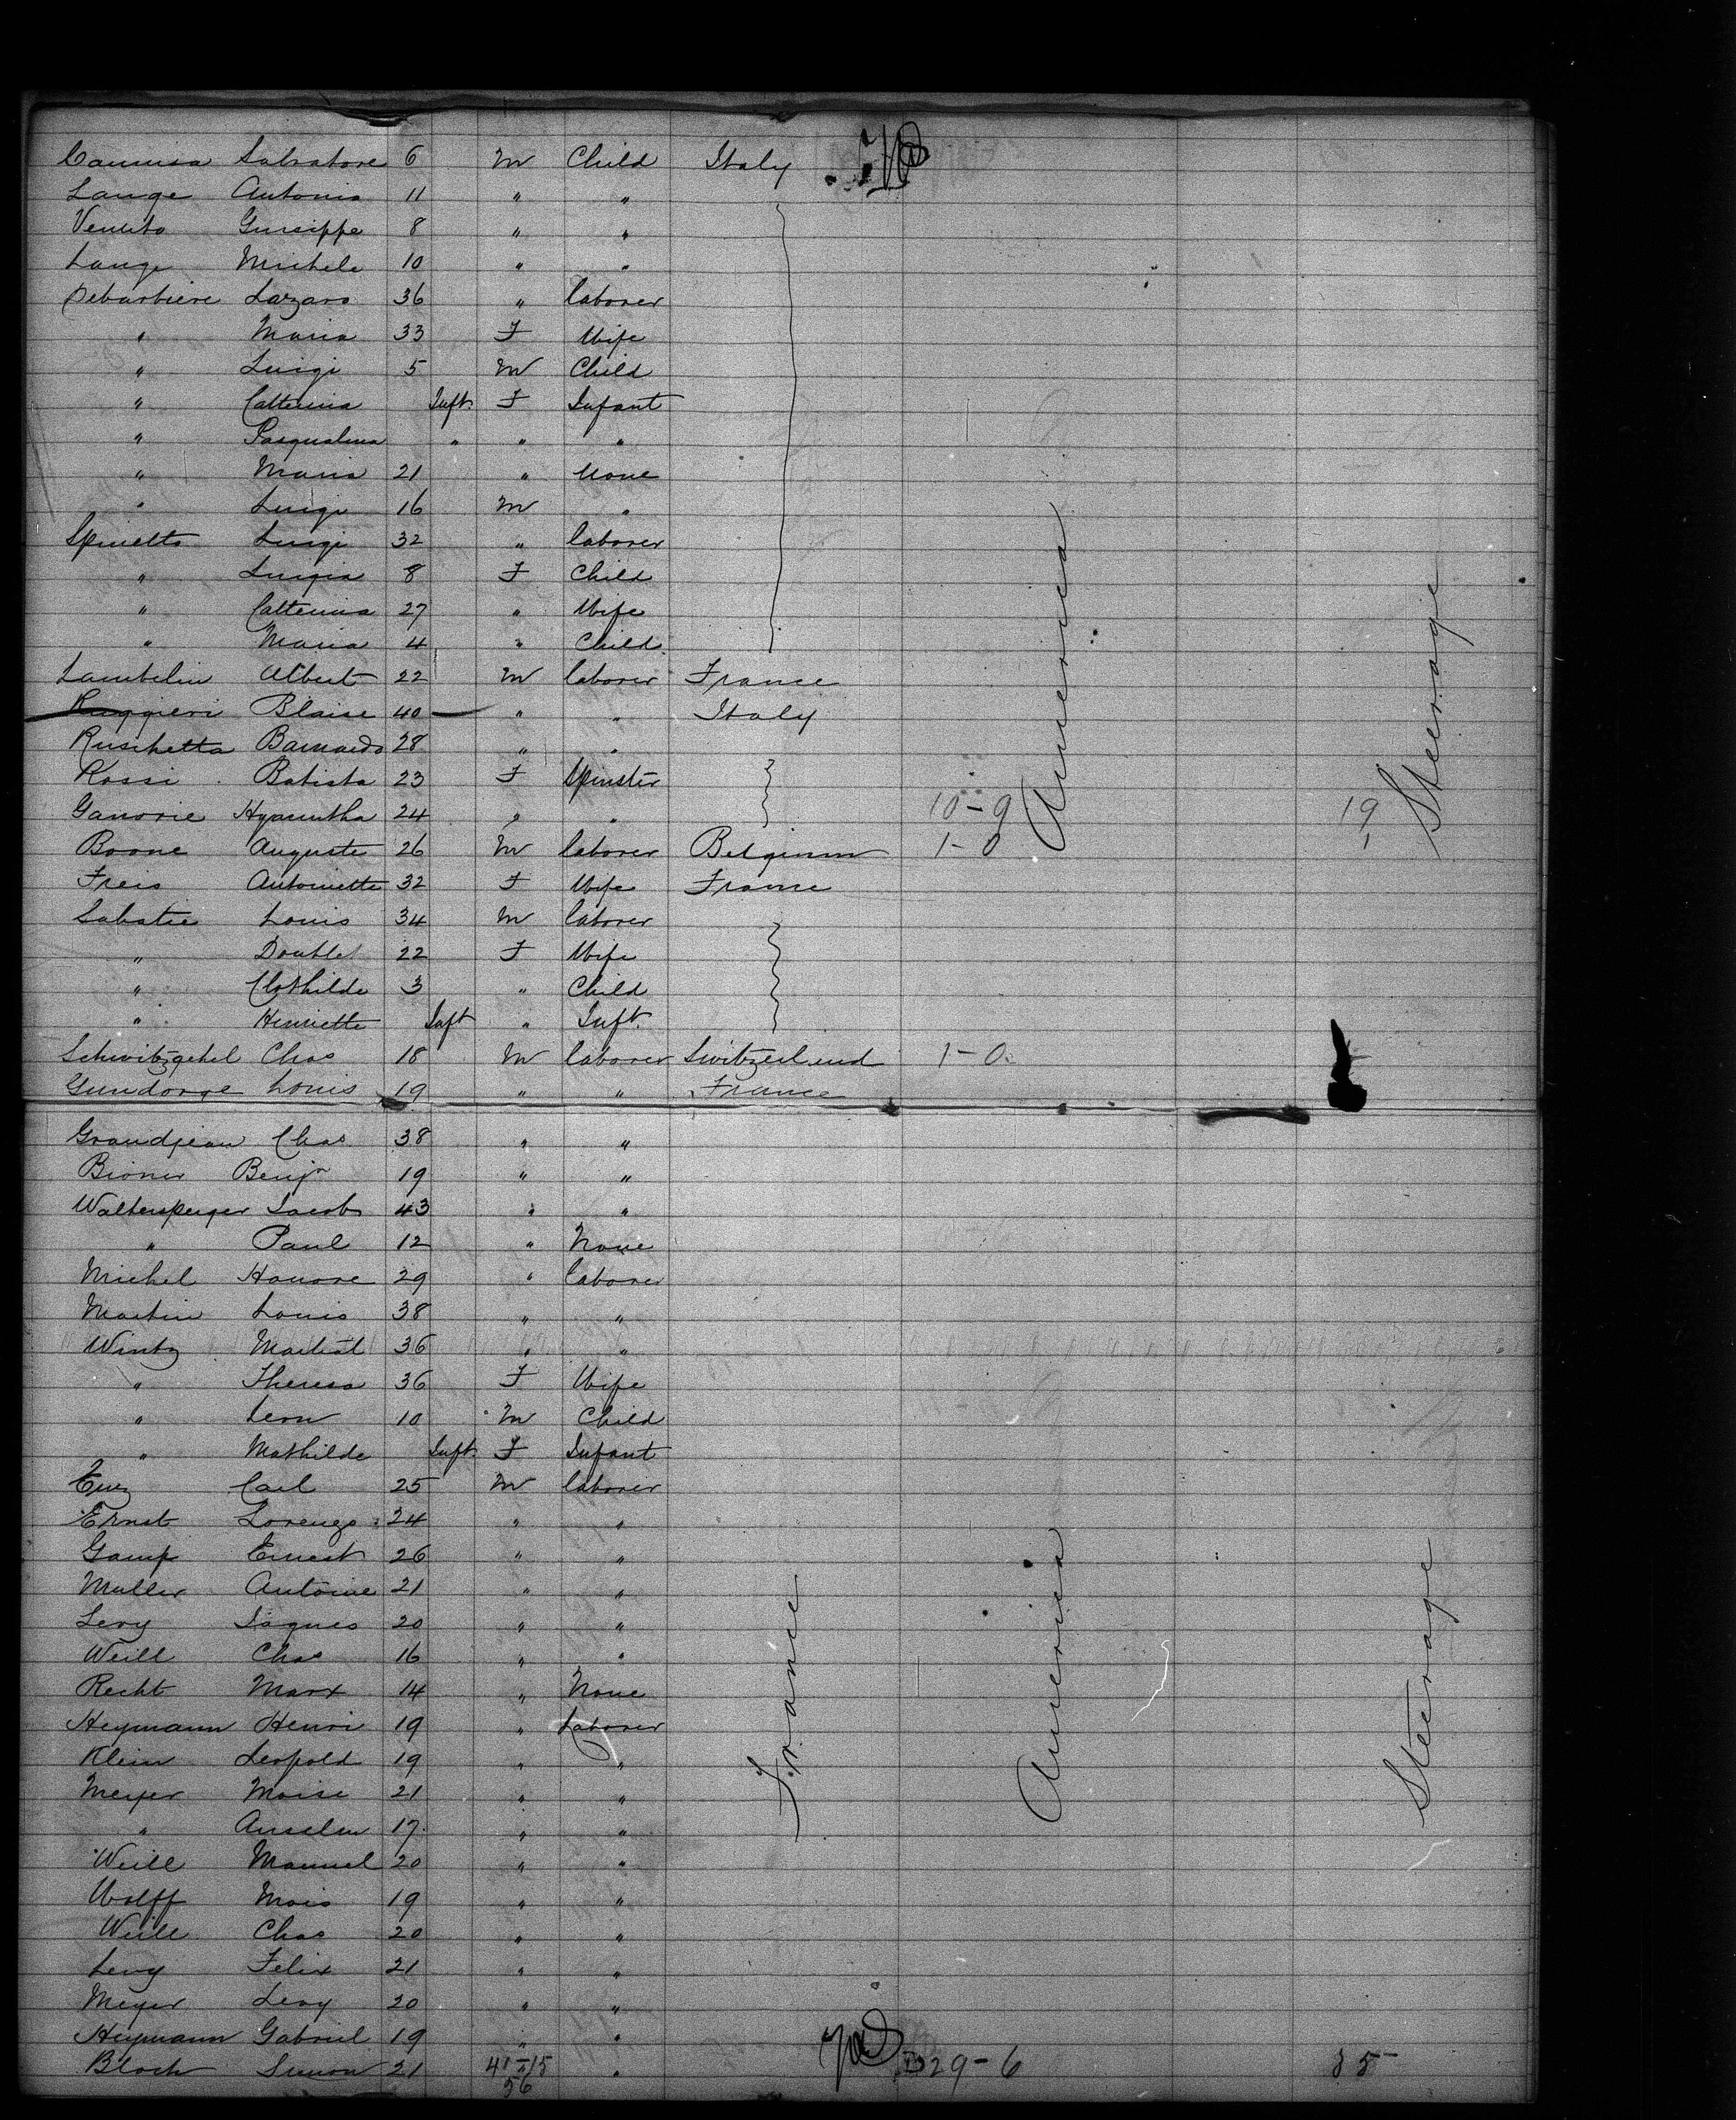 Salvatore 6 M Child Italy
Lange Antonio 11 " "
Giuseippe 8 " "
Lange Michele 10 " "
Debarbiere Lazaro 36 " laborer
" Maria 33 F Wife
" Luigi 5 M Child
" Catterina Inft. F Infant
" Pasqualina " " "
" Maria 21 " None
" Luigi 16 M "
Spinetto Luigi 32 " laborer
" Luigia 8 F Child
" Catterina 27 " Wife
" Maria 4 " Child
Lambelin Albert 22 M laborer France
Ruggieri Blaise 40 " " Italy
Ruschetta Barnardo 28 " "
Rossi Batista 23 F Spinster
Ganorie Hyacintha 24 " " 10-9 America 19 Steerage
Boone Auguste 26 M laborer Belgium 1-0 1
Freis Antoinette 32 F Wife France
Sabatie Louis 34 M laborer
" Double 22 F Wife
" Clothilde 3 " Child
" Henriette Inft " Inft.
Schwitzgebel Chas 18 M laborer Switzerland 1-0
Gundorge Louis 19 " " France
Grandjean Chas 38 " "
Bioner Benjn 19 " "
Waltersperger Jacob 43 " "
" Paul 12 " None
Michel Honore 29 " laborer
Martin Louis 38 " "
Wintz Martial 36 " "
" Theresa 36 F Wife
" Leon 10 M Child
" Mathilde Inft. F Infant
Carl 25 M laborer
Ernst Lorenzo 24 " "
Gamp Ernest 26 " "
Muller Antoine 21 " "
Levy Jaques 20 " "
Weill Chas 16 " "
Recht Marx 14 " None
Heymann Henri 19 " Laborer
Klein Leopold 19 " "
Meyer Moise 21 " " France America Steerage
" Anselm 17 " "
Weill Manuel 20 " "
Wolff Mois 19 " "
Weill Chas 20 " "
Levy Felix 21 " "
Meyer Levy 20 " "
Heymann Gabriel 19 " "
Bloch Simon 21 41-15 " 29-6 35
56